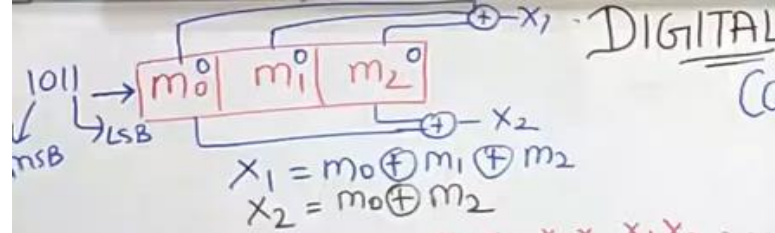 ⊕ - X₁ DIGITAL
1011 → m₀ 0 m₁ 0 m₂ 0 CO
MSB LSB ⊕ - X₂
X₁ = m₀ ⊕ m₁ ⊕ m₂
X₂ = m₀ ⊕ m₂